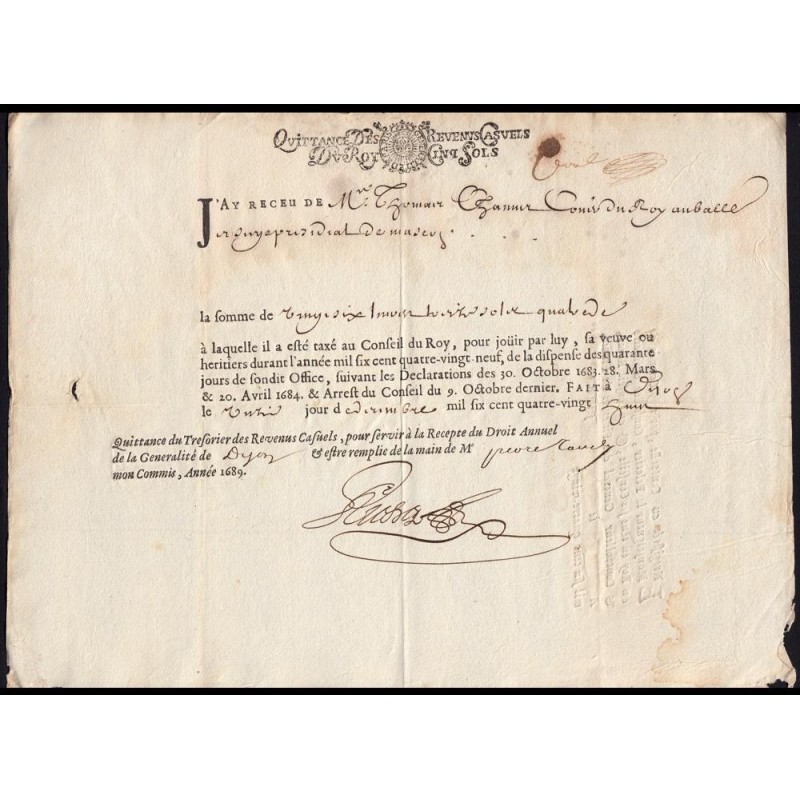 QUITTANCE DES REVENUS CASUELS
DU ROY CINQ SOLS
J'AY RECEU DE Mre Thomas Chanur Conér du Roy au balle
siege presidial de mascon
la somme de vingt six livres treize sols quatre d
à laquelle il a esté taxé au Conseil du Roy, pour joüir par luy, sa veuve ou
heritiers durant l'année mil six cent quatre-vingt-neuf, de la dispense des quarante
jours de sondit Office, suivant les Declarations des 30. Octobre 1683. 28. Mars
& 20. Avril 1684. & Arrest du Conseil du 9. Octobre dernier. FAIT à Dijon
le jour de decembre mil six cent quatre-vingt huit
Quittance du Tresorier des Revenus Casuels, pour servir à la Recepte du Droit Annuel
de la Generalité de Dijon & estre remplie de la main de Mr pierre
mon Commis, Année 1689.